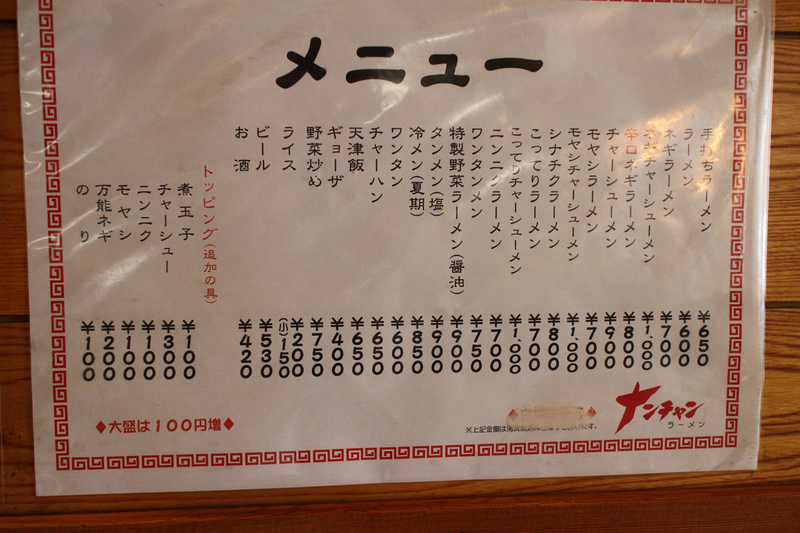 メニュー
手打ちラーメン ¥650
ラーメン ¥600
ネギラーメン ¥700
ネギチャーシューメン ¥1,000
辛口ネギラーメン ¥800
チャーシューメン ¥900
モヤシラーメン ¥700
モヤシチャーシューメン ¥1,000
シナチクラーメン ¥800
こってりラーメン ¥700
こってりチャーシューメン ¥1,000
ニンニクラーメン ¥700
ワンタンメン ¥750
特製野菜ラーメン(醤油) ¥900
タンメン(塩) ¥900
冷メン(夏期) ¥850
ワンタン ¥600
チャーハン ¥650
天津飯 ¥650
ギョーザ ¥400
野菜炒め ¥750
ライス ¥200 (小)150
ビール ¥530
お酒 ¥420
トッピング(追加の具)
煮玉子 ¥100
チャーシュー ¥300
ニンニク ¥100
モヤシ ¥100
万能ネギ ¥200
のり ¥100
◆大盛は100円増◆
※上記金額は
ナンチャン
ラーメン